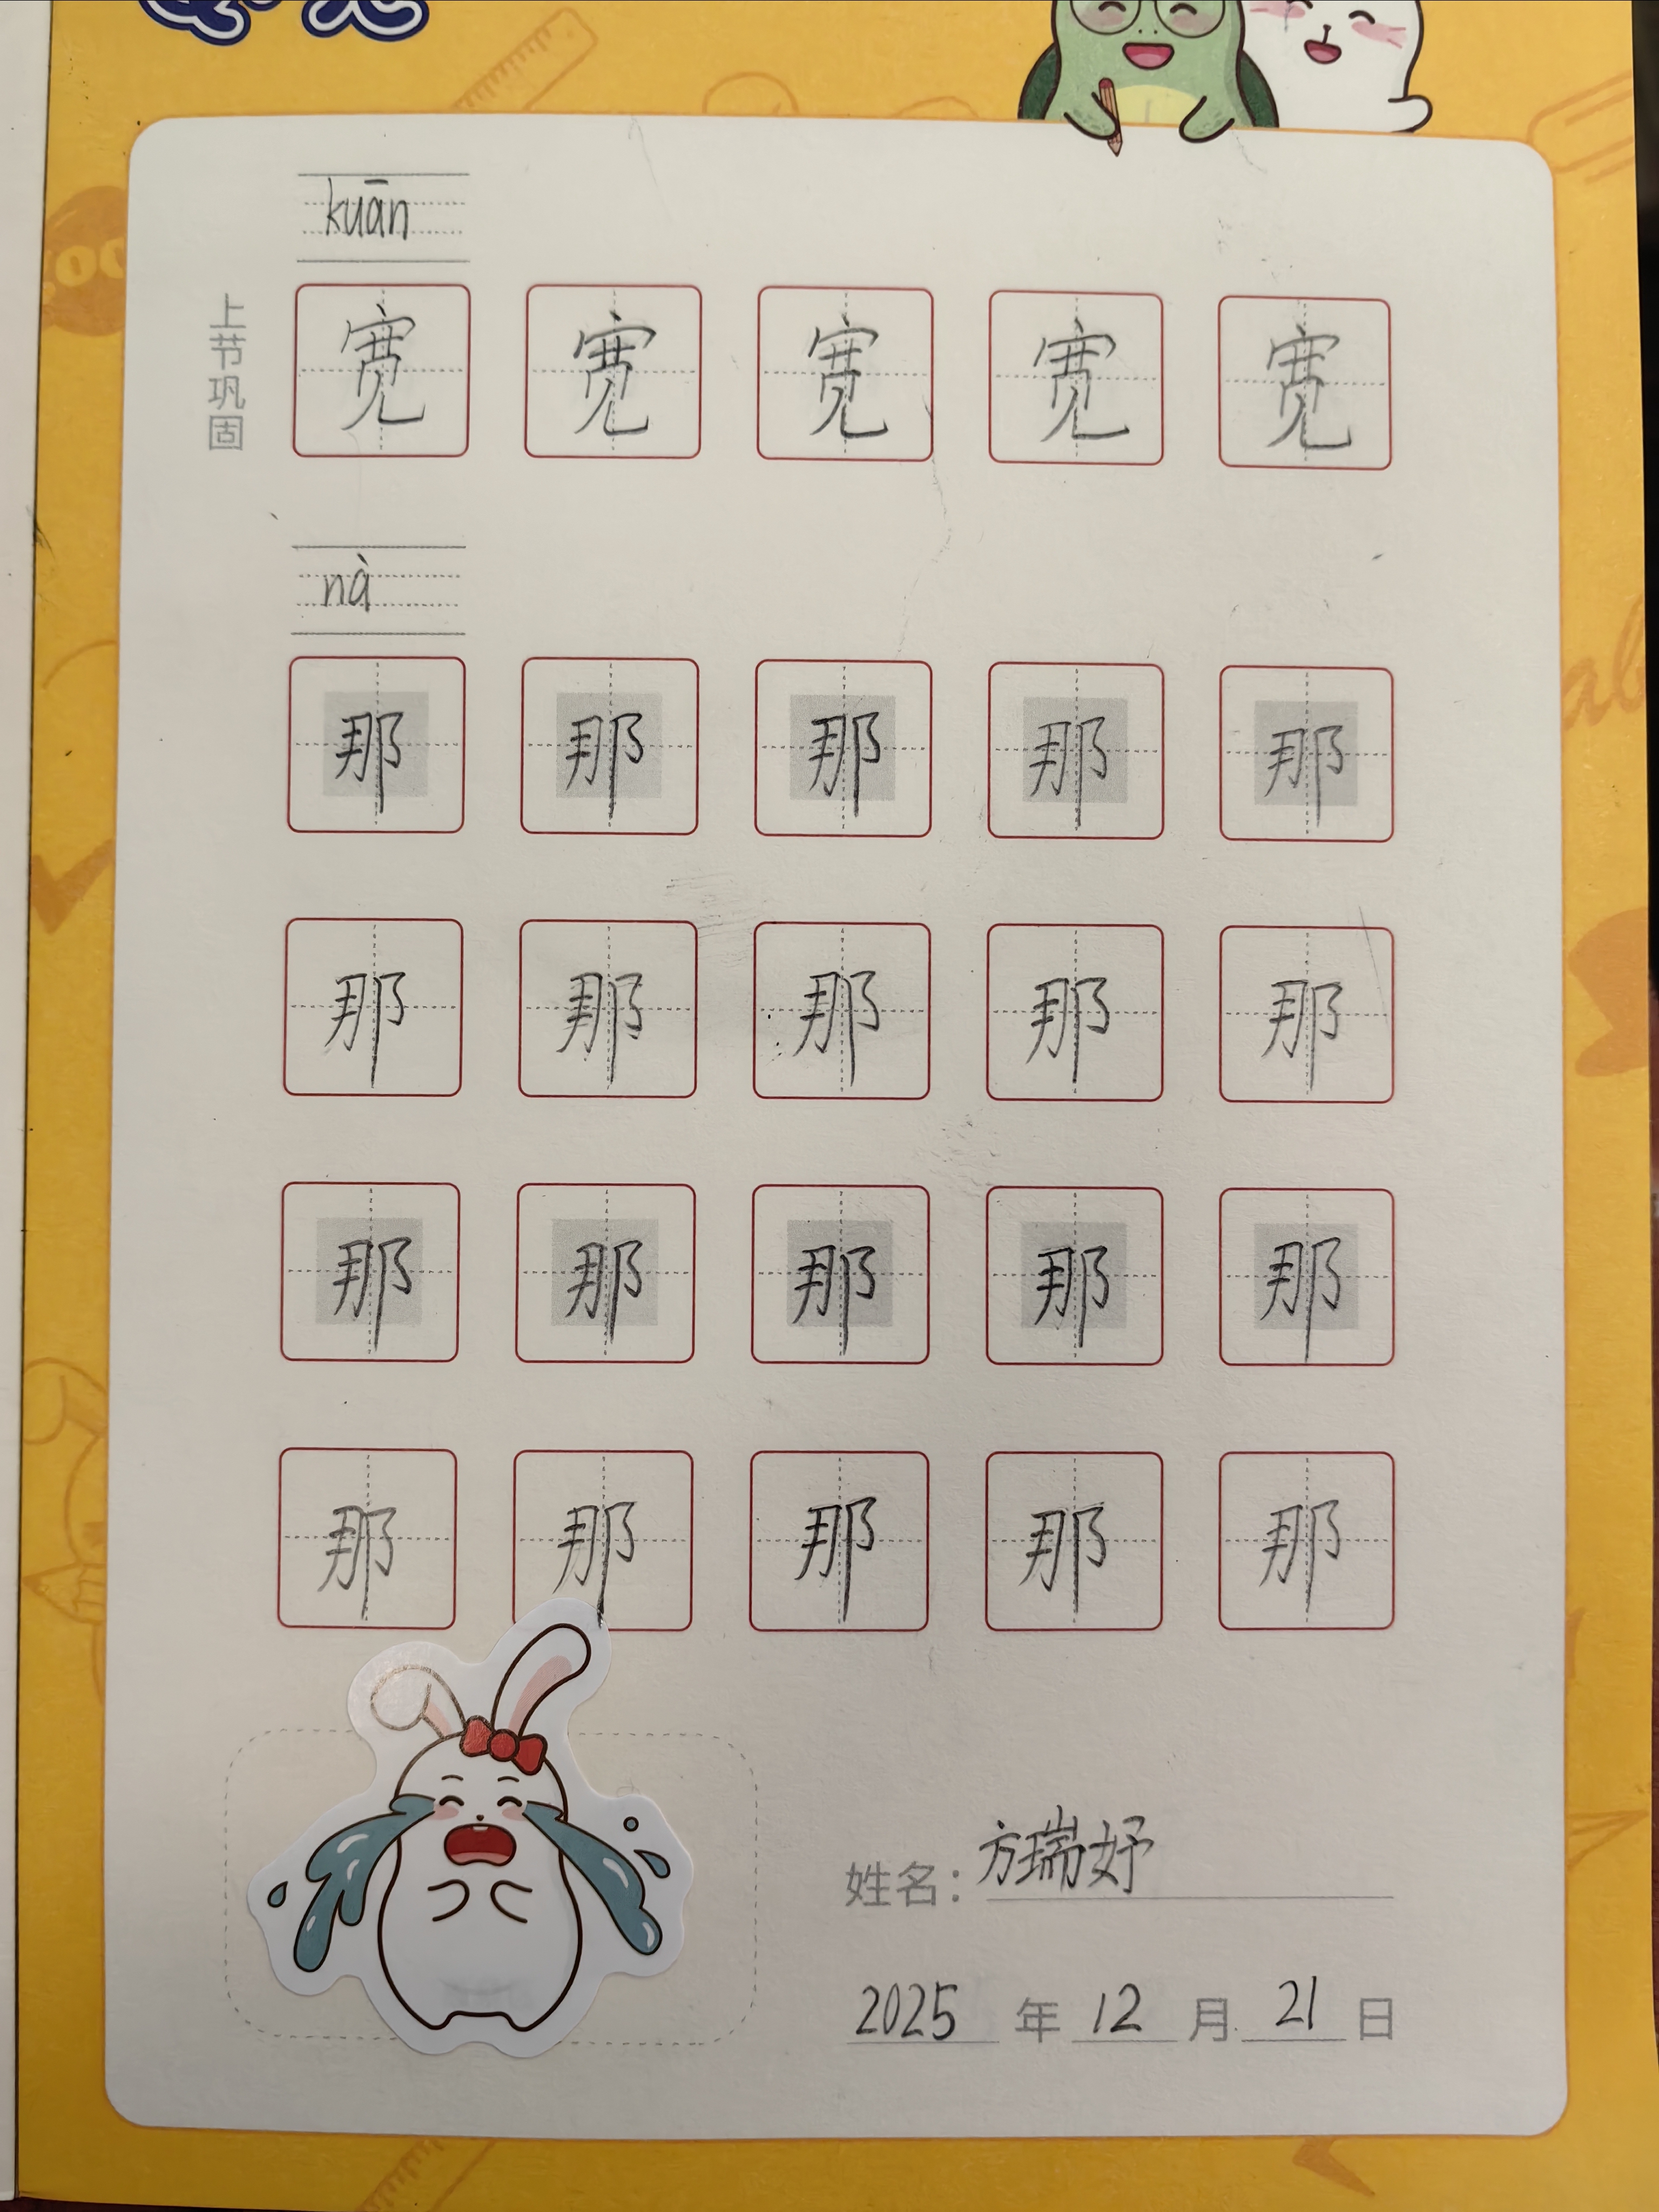 kuān
上节巩固
宽 宽 宽 宽 宽
nà
那 那 那 那 那
那 那 那 那 那
那 那 那 那 那
那 那 那 那 那
姓名：方瑞妤
2025 年 12 月 21 日